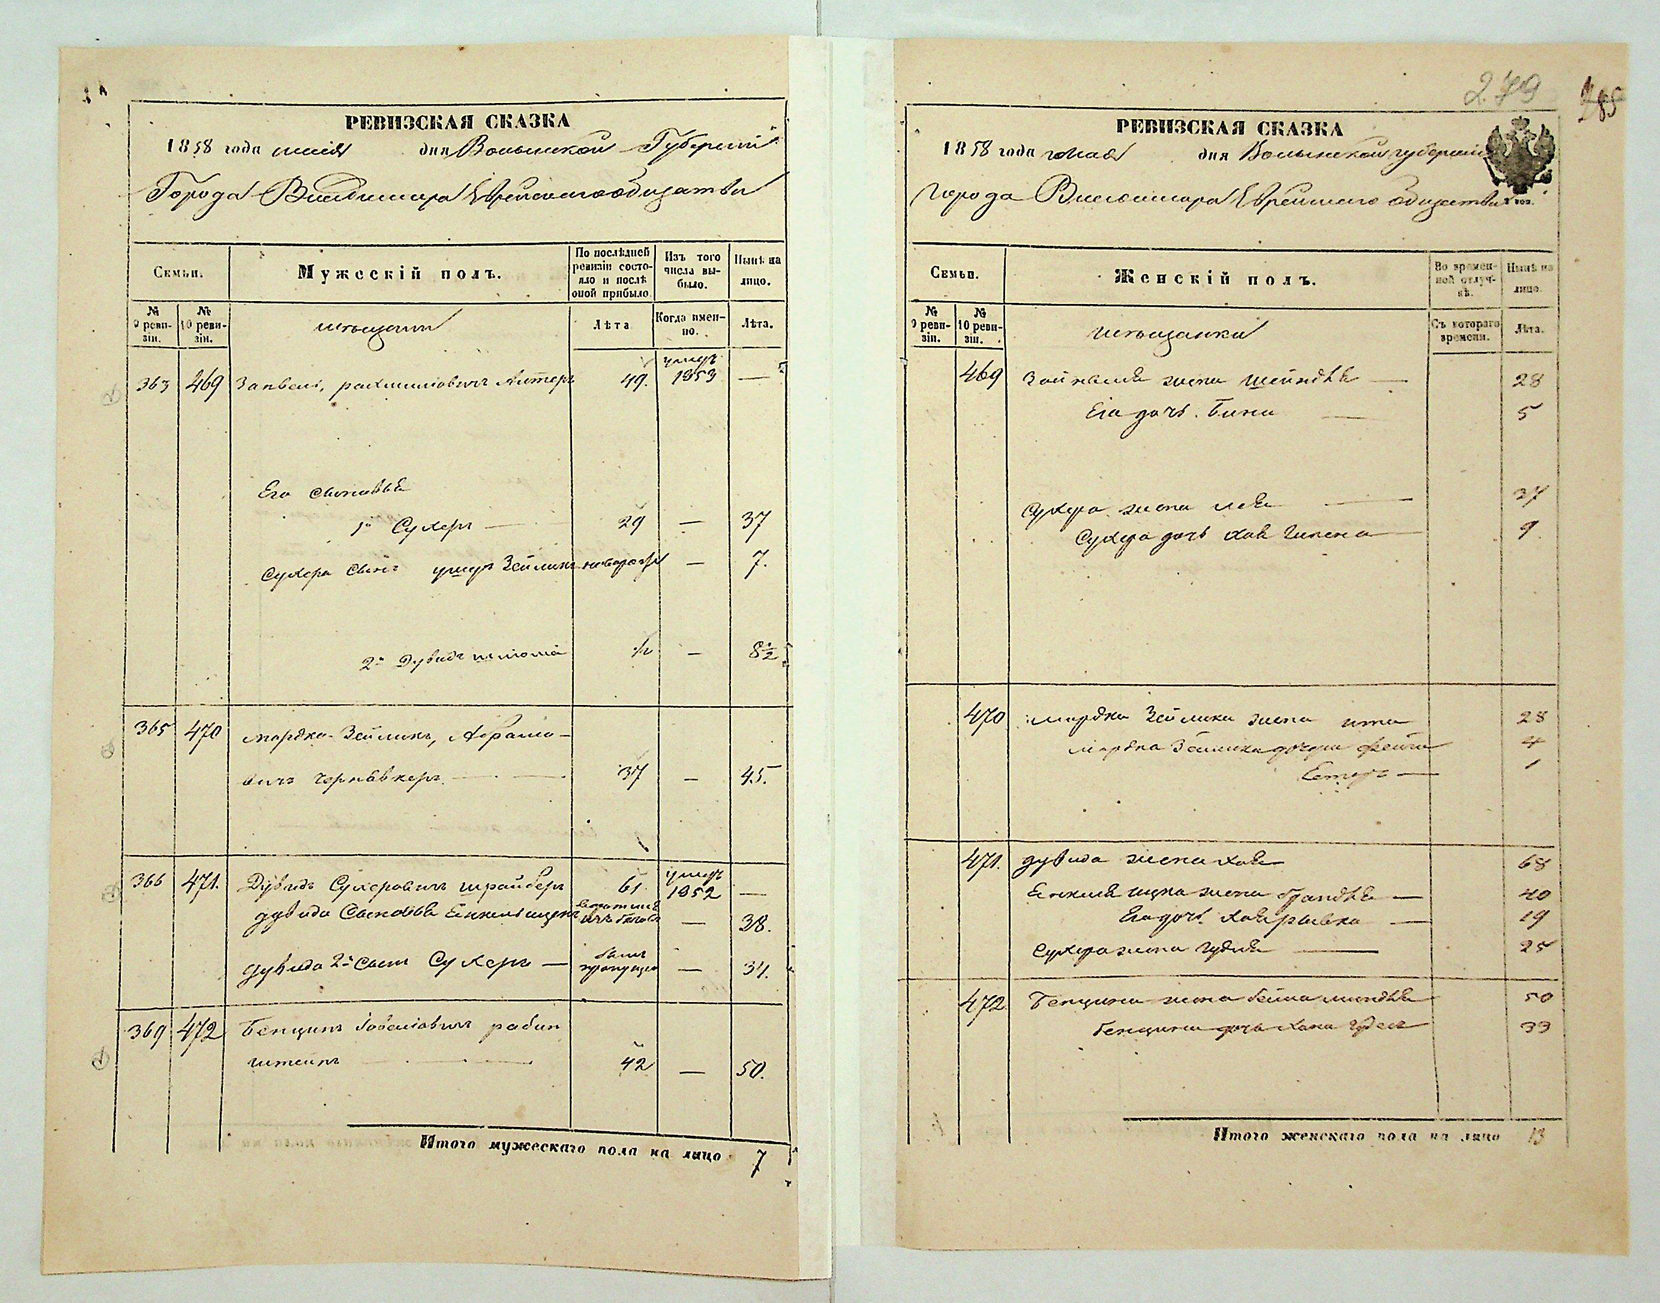 РЕВИЗСКАЯ СКАЗКА
1858 года мая дня Волынской Губерніи
Города Владимира Еврейскаго общества
Семьи.
Мужескій полъ.
По послѣдней ревизіи состояло и послѣ оной прибыло.
Изъ того числа выбыло.
Нынѣ на лицо.
№ 9 ревизіи.
№ 10 ревизіи.
мѣщани
Лѣта
Когда именно.
Лѣта.
363 469 рахмиловичъ 49. умеръ 1853 —
Его сыновья
1й Сухеръ — 29 — 37
Сухера сынъ Зейликъ новорож — 7.
2й Дувидъ ½ — 8½
365 470 Мордко-Зейликъ, Абрамо-
вичъ 37 — 45.
366 471. Дувидъ Сухеровичъ шрайберъ 61 умеръ 1852 —
Дувида сыновья — 38.
Дувида 2й сынъ Сухеръ — былъ пропущен — 34.
369 472 Бенционъ рабин
штейнъ 42 — 50.
Итого мужескаго пола на лицо 7
279
285
РЕВИЗСКАЯ СКАЗКА
1858 года мая дня Волынской губерніи
города Владимира Еврейскаго общества
Семьи.
Женскій полъ.
Во временной отлучкѣ.
Нынѣ на лицо.
№ 9 ревизіи.
№ 10 ревизіи.
мѣщанки
Съ котораго времени.
Лѣта.
469 жена Шейндля — 28
Его дочь Бина — 5
Сухера жена Лея — 37
Сухера дочь Хая — 9
470 Мордка Зейлика жена 28
Мордка Зейлика дочери Фейга 4
Естеръ — 1
471. Дувида жена Хая 68
жена Брандля — 40
Его дочь Хая рывка — 19
Сухера жена — 25
472 Бенциона жена Бейла миндля 50
Бенциона дочь Хана 33
Итого женскаго пола на лицо 13